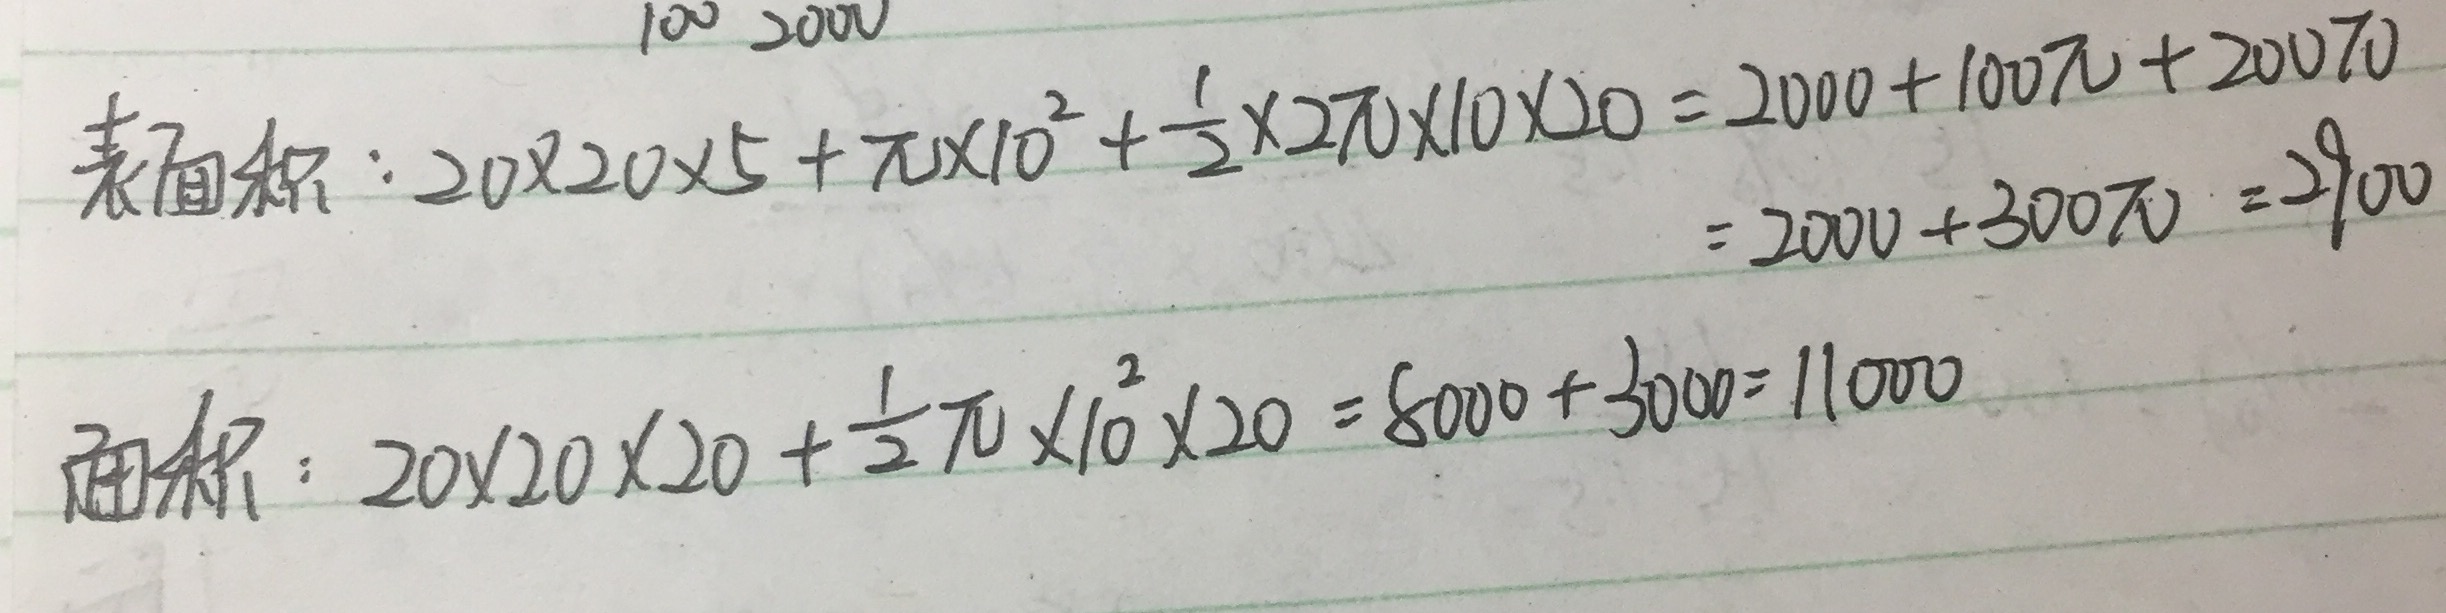 100 2000
表面积：20×20×5+π×10²+1/2×2π×10×20=2000+100π+200π
=2000+300π=2900
面积：20×20×20+1/2π×10²×20=8000+3000=11000